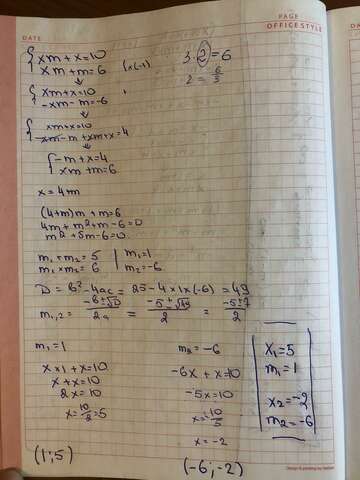 DATE
PAGE
OFFICESTYLE
{ xm + x = 10
xm + m = 6 (x(-1)
3 · 2 = 6
2 = 6/3
{ xm + x = 10
-xm - m = -6
{ xm + x = 10
-xm - m + xm + x = 4
{ -m + x = 4
xm + m = 6
x = 4 + m
(4+m)m + m = 6
4m + m² + m - 6 = 0
m² + 5m - 6 = 0
m₁ + m₂ = 5 | m₁ = 1
m₁ × m₂ = 6 | m₂ = -6
D = b² - 4ac = 25 - 4 × 1 × (-6) = 49
m₁,₂ = -b ± √D / 2a = -5 ± √49 / 2 = -5 ± 7 / 2
m₁ = 1
x × 1 + x = 10
x + x = 10
2x = 10
x = 10/2 = 5
(1; 5)
m₂ = -6
-6x + x = 10
-5x = 10
x = -10/5
x = -2
(-6; -2)
x₁ = 5
m₁ = 1
x₂ = -2
m₂ = -6